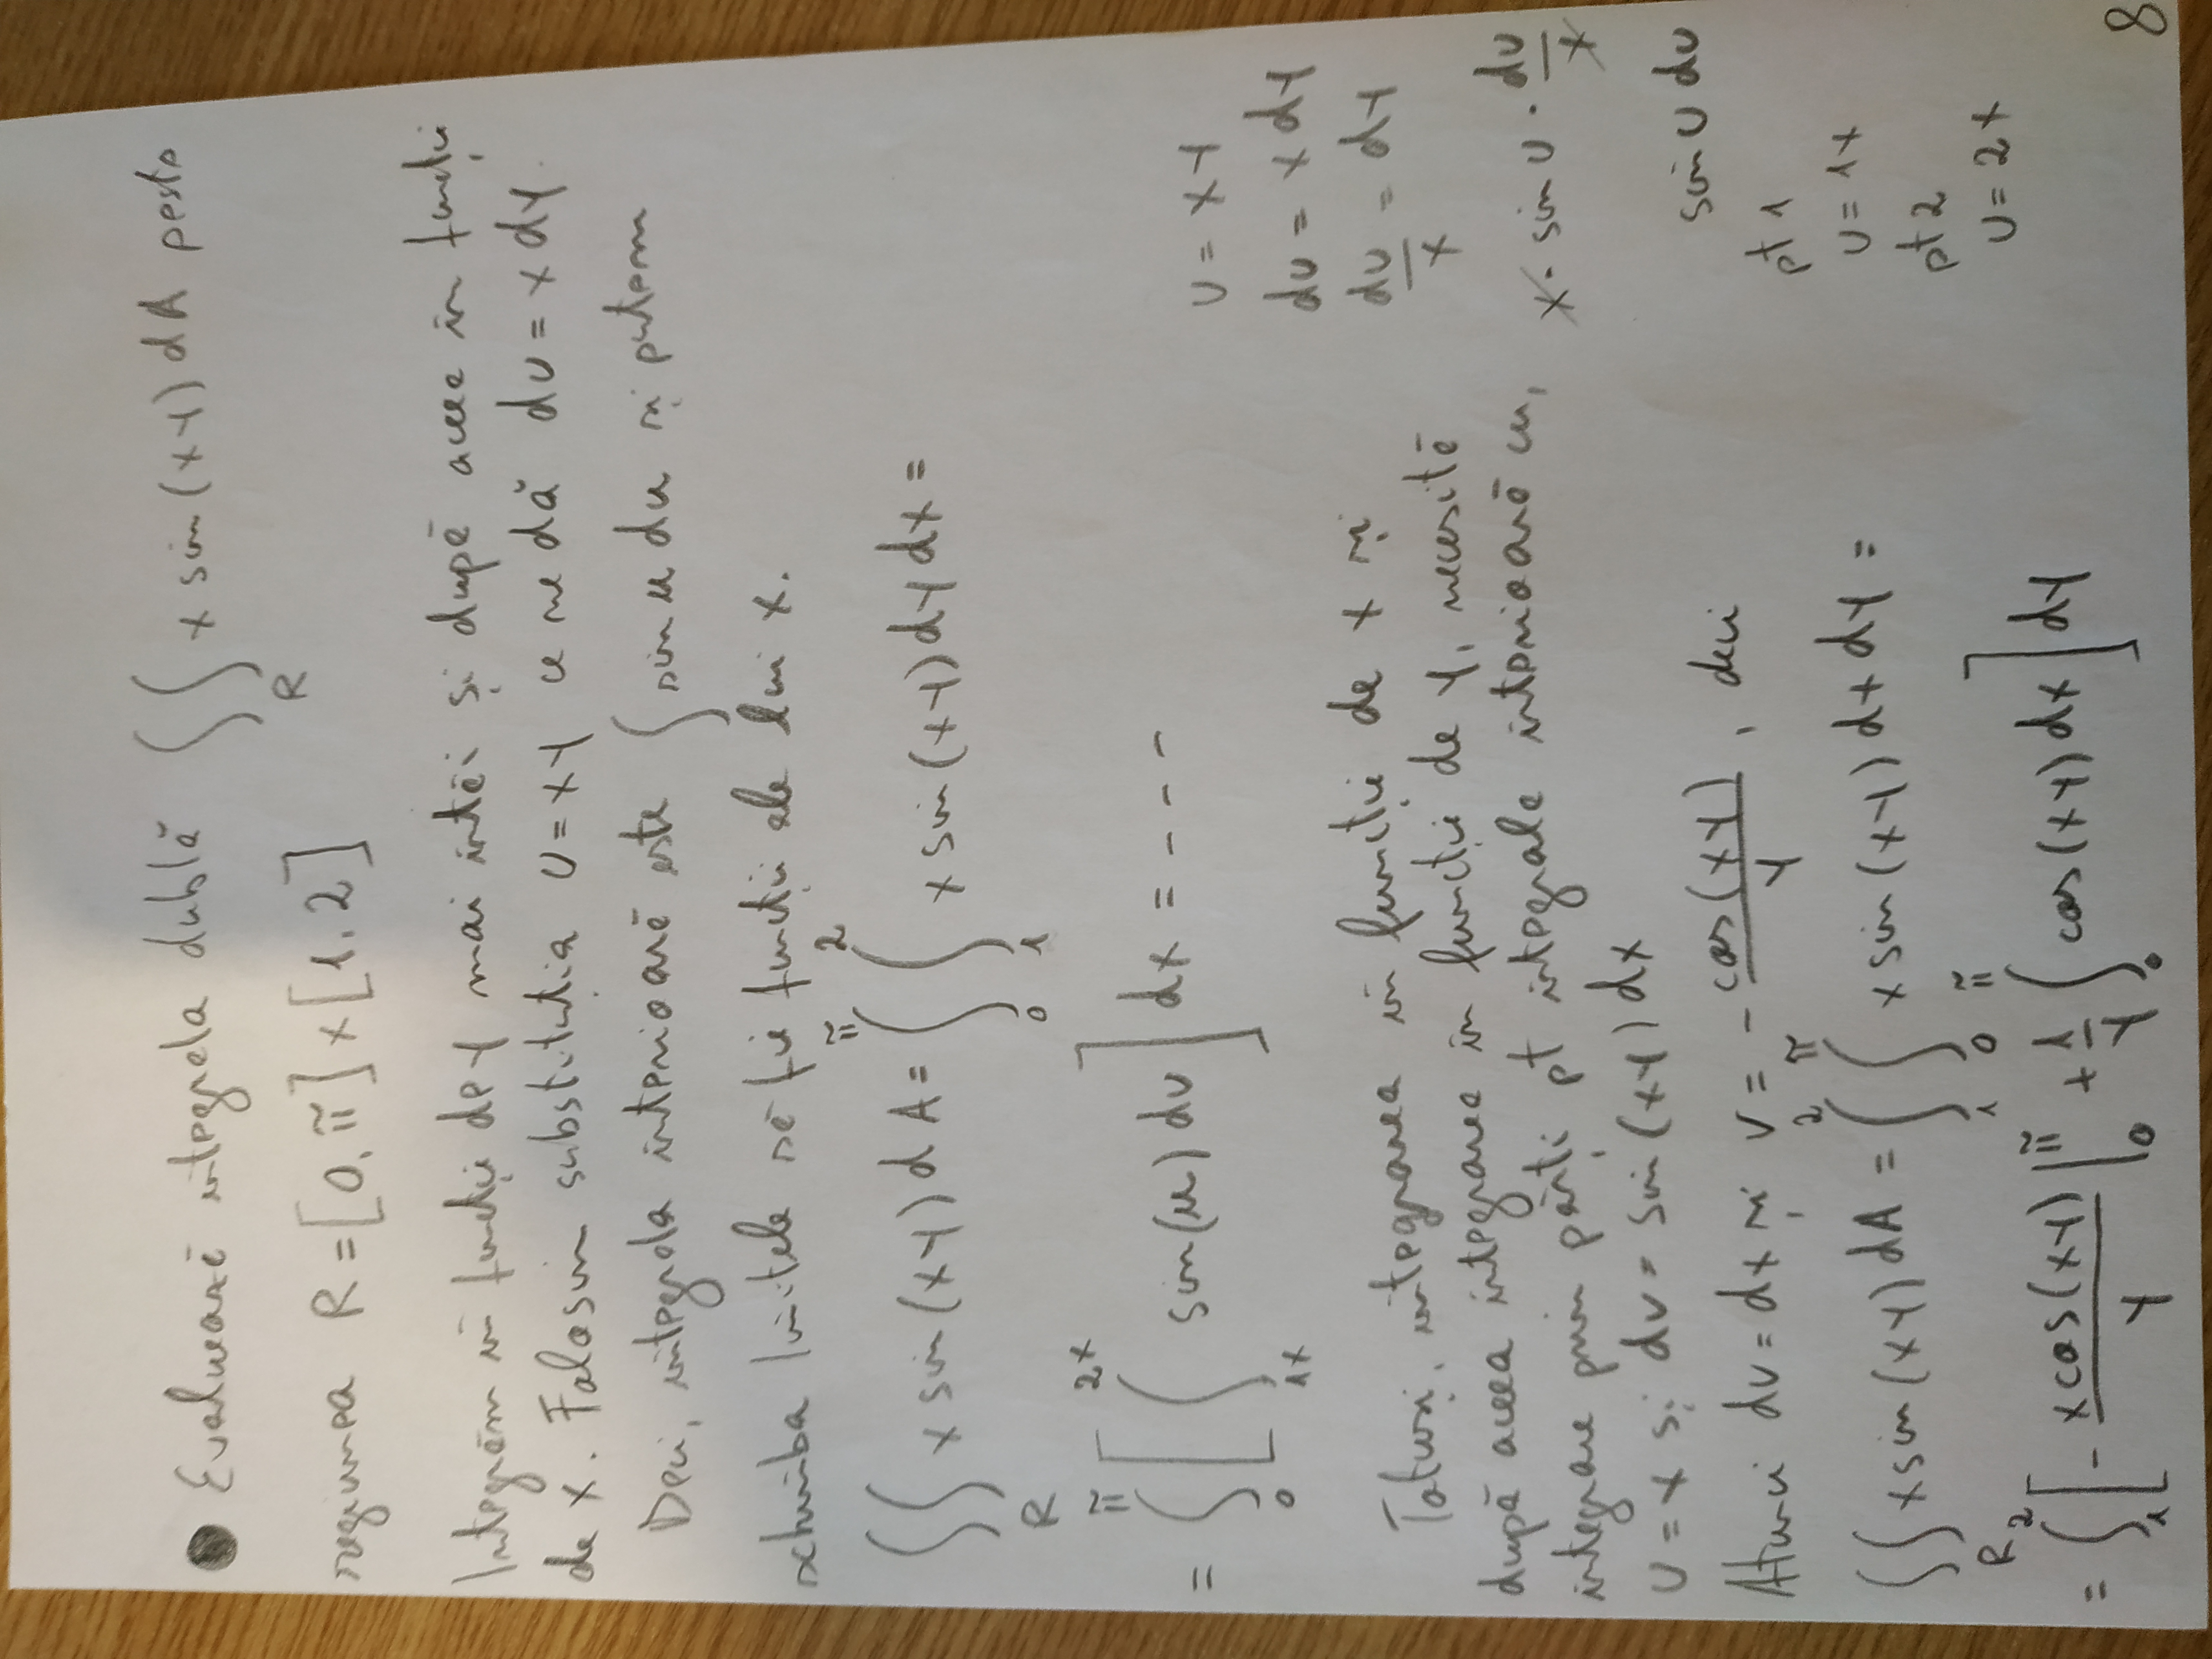 Evaluează integrala dublă ∫∫_R x sin(xy) dA peste
regiunea R = [0, π] × [1, 2]
Integrăm în funcție de y mai întâi și după aceea în funcție
de x. Folosim substituția u = xy ce ne dă du = x dy.
Deci, integrala interioară este ∫ sin u du și putem
schimba limitele să fie funcții ale lui x.
∫∫_R x sin(xy) dA = ∫_0^π ∫_1^2 x sin(xy) dy dx =
= ∫_0^π [ ∫_{1x}^{2x} sin(u) du ] dx = - - -
Totuși, integrarea în funcție de x și
după aceea integrarea în funcție de y, necesită
integrare prin părți pt integrala interioară cu,
u = x și dv = sin(xy) dx
Atunci du = dx și v = - cos(xy)/y, deci
∫∫_R x sin(xy) dA = ∫_1^2 ∫_0^π x sin(xy) dx dy =
= ∫_1^2 [ - x cos(xy)/y |_0^π + 1/y ∫_0^π cos(xy) dx ] dy
u = xy
du = x dy
du/x = dy
x · sin u · du/x
sin u du
pt 1
u = 1x
pt 2
u = 2x
8